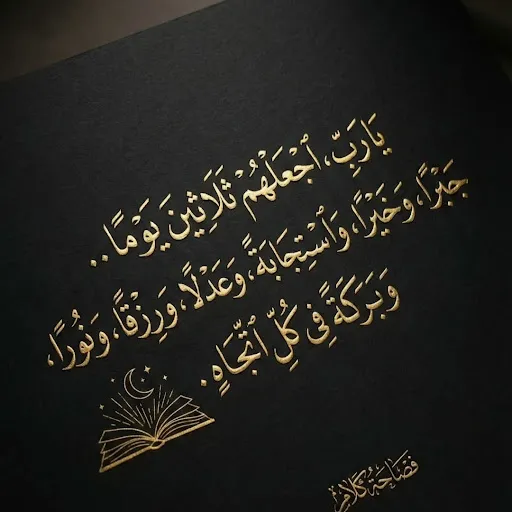 يَارَبِّ، ٱجْعَلْهُمْ ثَلَاثِينَ يَوْمًا..
جَبْرًا، وَخَيْرًا، وَٱسْتِجَابَةً، وَعَدْلًا، وَرِزْقًا، وَنُورًا،
وَبَرَكَةً فِي كُلِّ ٱتِّجَاهٍ.
فَصَاحَةُ كَلَامٍ